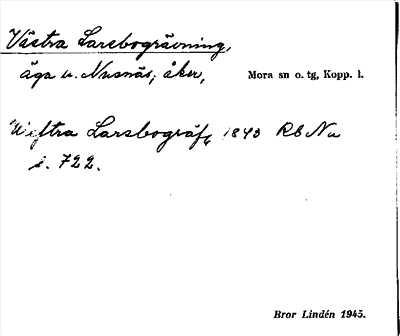 Västra Larsbogrävning,
äga u. Nusnäs; åker, Mora sn o. tg, Kopp. l.
Wiftra Larsbogräf, 1843 RB Nu
s. 722.
Bror Lindén 1945.